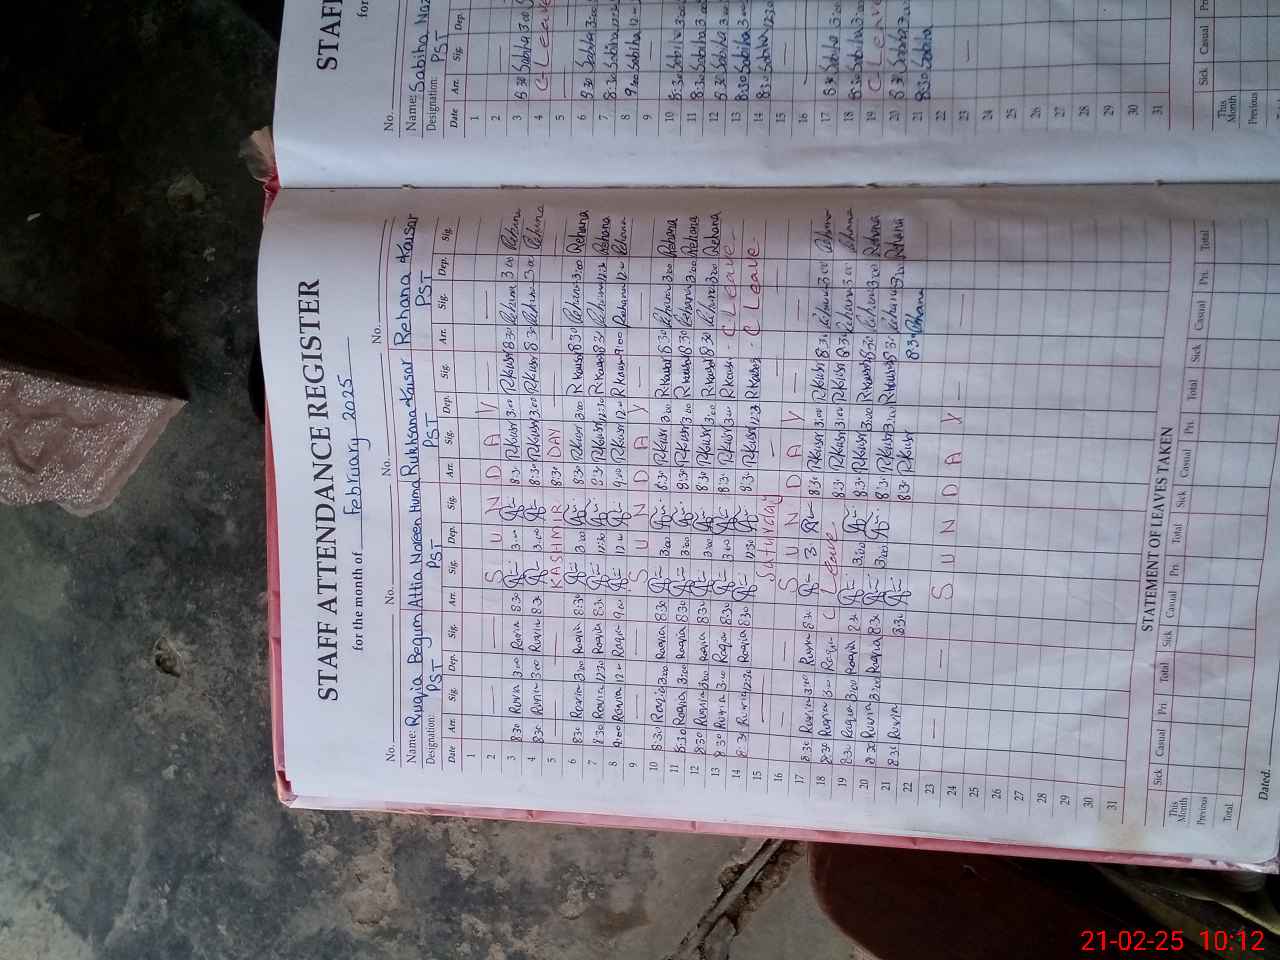 STAFF ATTENDANCE REGISTER
for the month of February 2025
No. No. No. No.
Name: Ruqia Begum Attia Nareen Huma Rukhsana Kausar Rehana Kausar
Designation: PST PST PST PST
Date Arr. Sig. Dep. Sig. Arr. Sig. Dep. Sig. Arr. Sig. Dep. Sig. Arr. Sig. Dep. Sig.
1
2 SUNDAY
3 8:30 Ruqia 3:00 Ruqia 8:30 3:00 8:30 RKausr 3:00 RKausr 8:30 Rehana 3:00 Rehana
4 8:30 Ruqia 3:00 Ruqia 8:30 3:00 8:30 RKausr 3:00 RKausr 8:30 Rehana 3:00 Rehana
5 KASHMIR DAY
6 8:30 Ruqia 3:00 Ruqia 8:30 3:00 8:30 RKausr 3:00 RKausr 8:30 Rehana 3:00 Rehana
7 8:30 Ruqia 12:30 Ruqia 8:30 12:30 8:30 RKausr 12:30 RKausr 8:30 Rehana 12:30 Rehana
8 9:00 Ruqia 12:00 Ruqia 9:00 12:00 9:00 RKausr 12:00 RKausr 9:00 Rehana 12:00 Rehana
9 SUNDAY
10 8:30 Ruqia 3:00 Ruqia 8:30 3:00 8:30 RKausr 3:00 RKausr 8:30 Rehana 3:00 Rehana
11 8:30 Ruqia 3:00 Ruqia 8:30 3:00 8:30 RKausr 3:00 RKausr 8:30 Rehana 3:00 Rehana
12 8:30 Ruqia 3:00 Ruqia 8:30 3:00 8:30 RKausr 3:00 RKausr 8:30 Rehana 3:00 Rehana
13 8:30 Ruqia 3:00 Ruqia 8:30 3:00 8:30 RKausr 3:00 RKausr C Leave
14 8:30 Ruqia 12:30 Ruqia 8:30 12:30 8:30 RKausr 12:30 RKausr C Leave
15 Saturday
16 SUNDAY
17 8:30 Ruqia 3:00 Ruqia 8:30 3 8:30 RKausr 3:00 RKausr 8:30 Rehana 3:00 Rehana
18 8:30 Ruqia 3:00 Ruqia C Leave 8:30 RKausr 3:00 RKausr 8:30 Rehana 3:00 Rehana
19 8:30 Ruqia 3:00 Ruqia 8:30 3:00 8:30 RKausr 3:00 RKausr 8:30 Rehana 3:00 Rehana
20 8:30 Ruqia 3:00 Ruqia 8:30 3:00 8:30 RKausr 3:00 RKausr 8:30 Rehana 3:00 Rehana
21 8:30 Ruqia 8:30 8:30 RKausr 8:30 Rehana
22
23 SUNDAY
24
25
26
27
28
29
30
31
STATEMENT OF LEAVES TAKEN
Sick Casual Pri. Total Sick Casual Pri. Total Sick Casual Pri. Total Sick Casual Pri. Total
This Month
Previous
Total
Dated.
STAFF
for
No.
Name: Sabiha Naz
Designation: PST
Date Arr. Sig. Dep.
1
2
3 8:30 Sabiha 3:00
4 C Leave
5
6 8:30 Sabiha 3:00
7 8:30 Sabiha 12:30
8 9:00 Sabiha 12
9
10 8:30 Sabiha 3:00
11 8:30 Sabiha 3:00
12 8:30 Sabiha 3:00
13 8:30 Sabiha 3:00
14 8:30 Sabiha 12:30
15
16
17 8:30 Sabiha 3:00
18 8:30 Sabiha 3:00
19 C Leave
20 8:30 Sabiha 3:00
21 8:30 Sabiha
22
23
24
25
26
27
28
29
30
31
Sick Casual Pri.
This Month
Previous
21-02-25 10:12